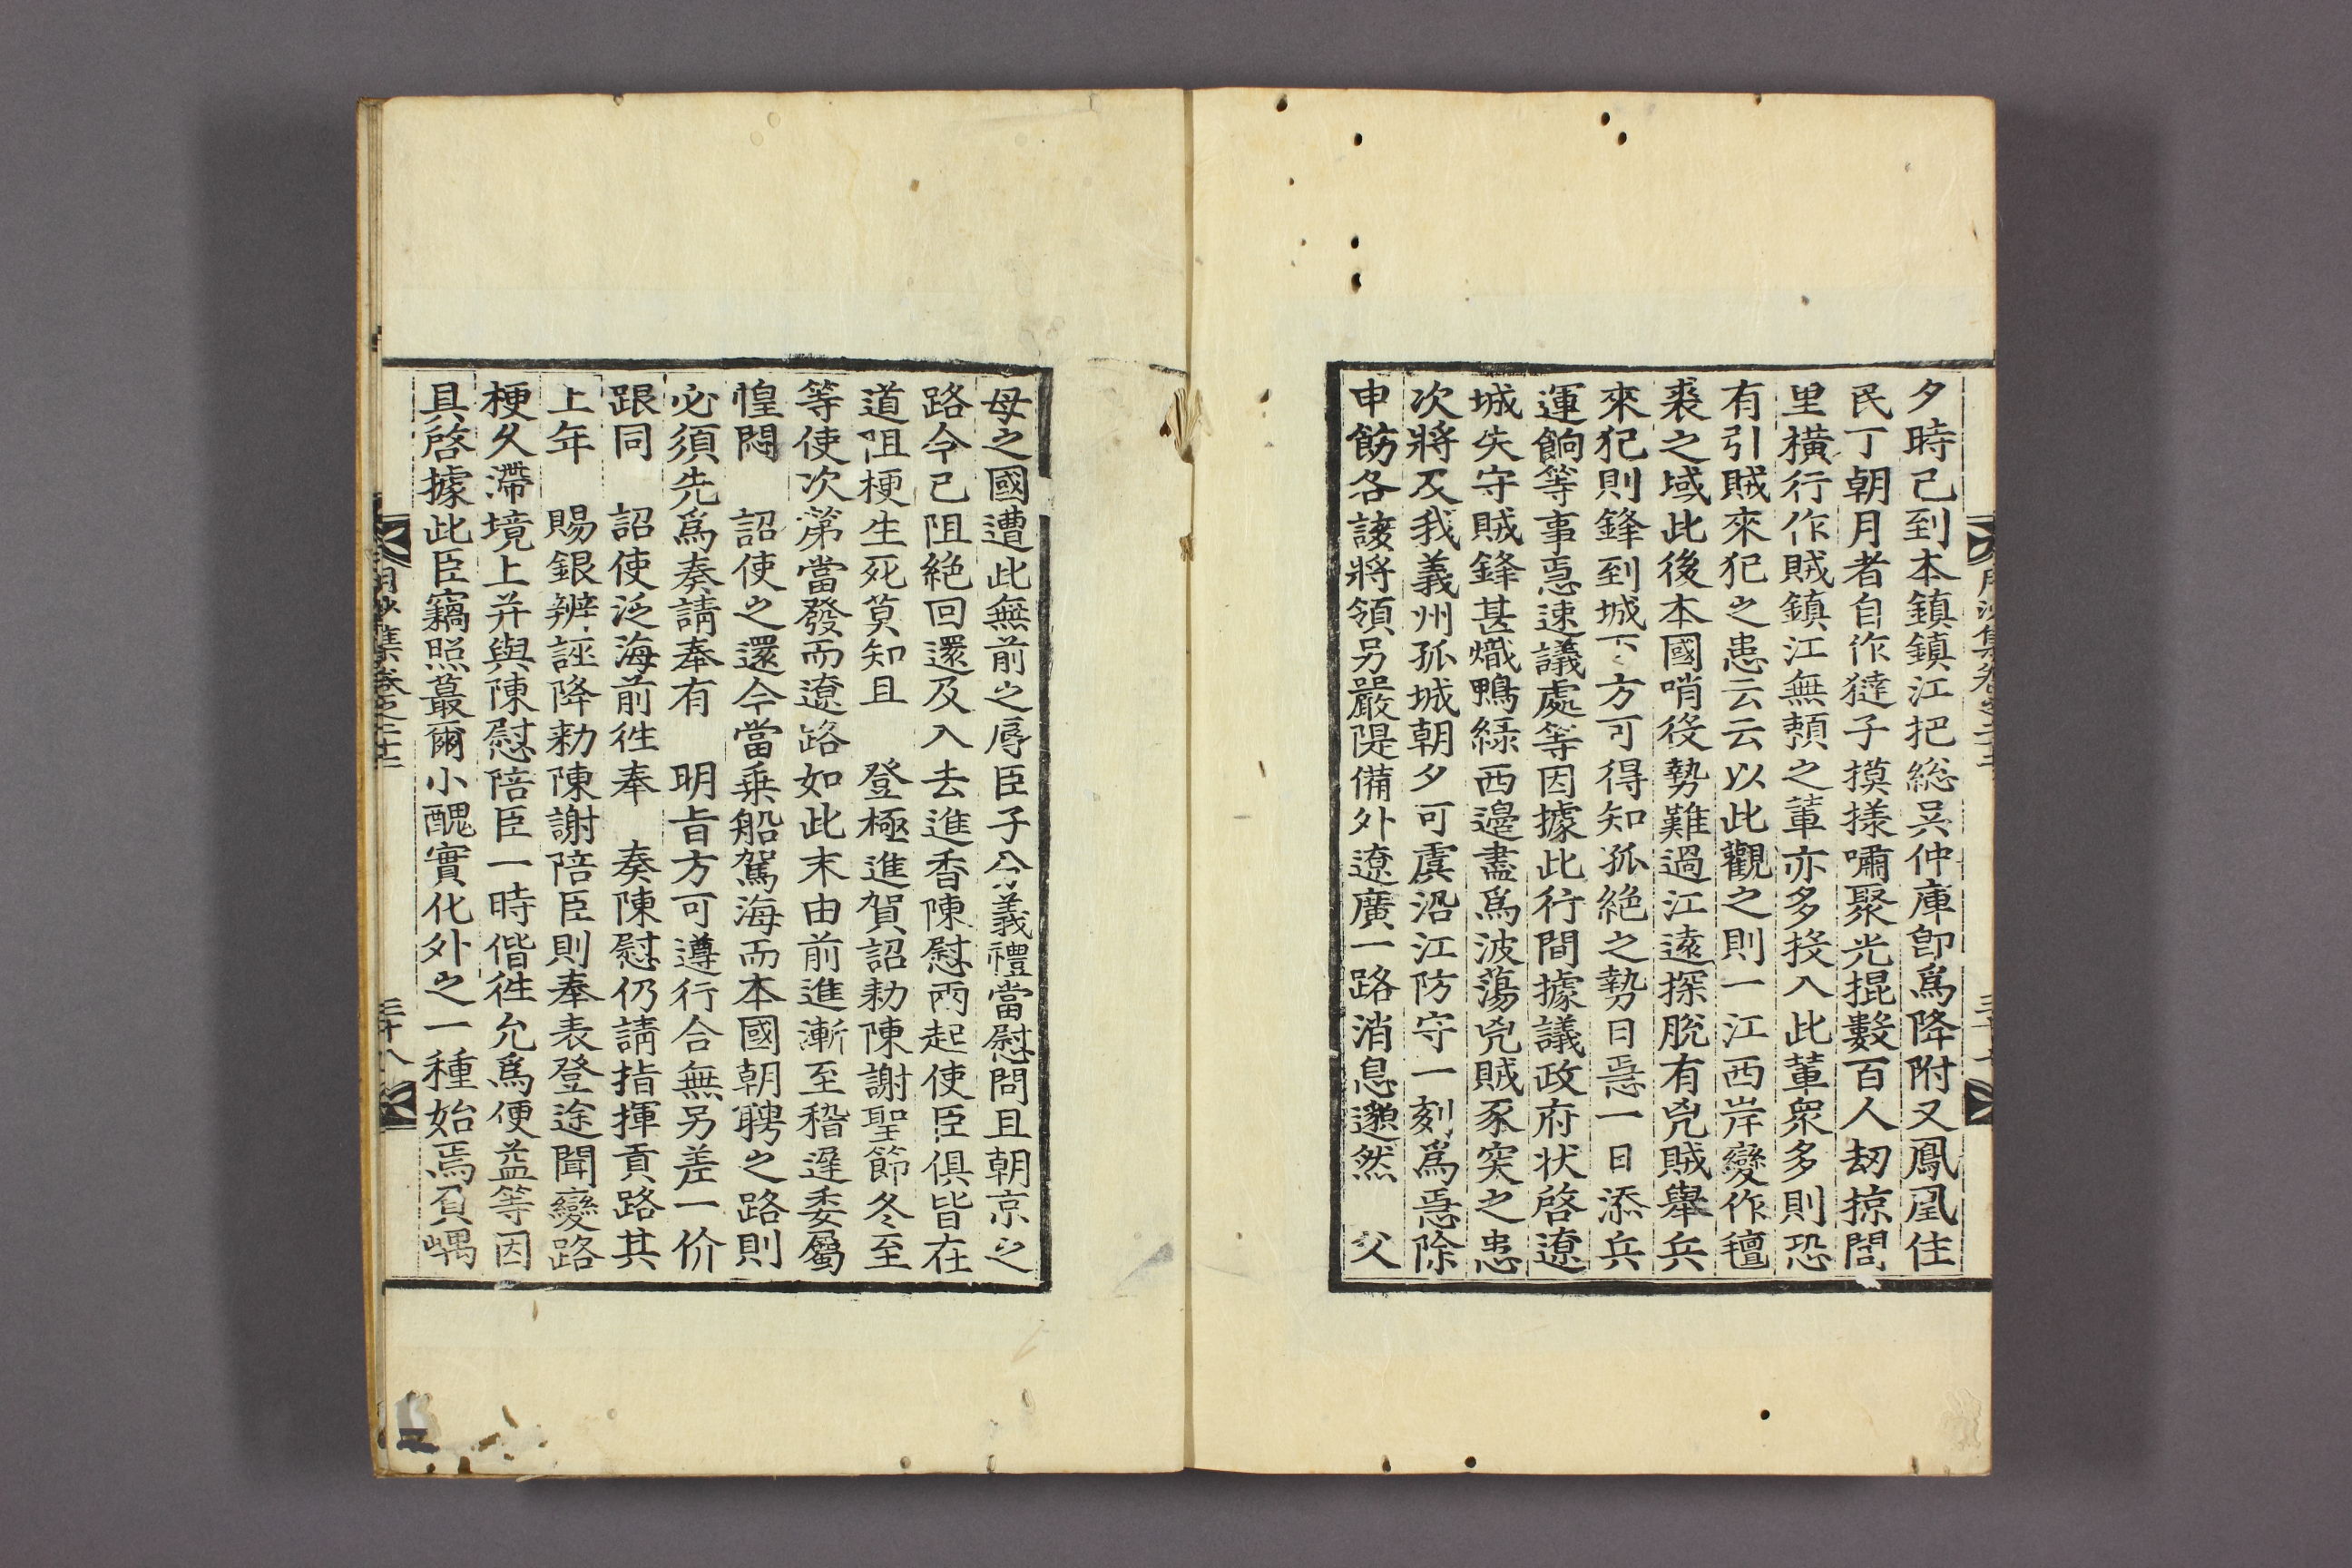 夕時已到本鎮鎮江把総吳仲庫卽爲降附又鳳凰住
民丁朝月者自作㺚子摸㨾嘯聚光掍數百人刼掠閭
里橫行作賊鎮江無頼之軰亦多投入此軰衆多則恐
有引賊來犯之患云云以此觀之則一江西岸變作氊
裘之域此後本國哨役勢難過江遠探脫有兇賊舉兵
來犯則鋒到城下方可得知孤絶之勢日急一日添兵
運餉等事急速議處等因據此行間據議政府状啓遼
城失守賊鋒甚熾鴨綠西邊盡爲波蕩兇賊豕突之患
次將及我義州孤城朝夕可虞沿江防守一刻爲急除
申飭各該將領另嚴隄備外遼廣一路消息邈然　父
母之國遭此無前之辱臣子分義禮當慰問且朝京之
路今已阻絶回還及入去進香陳慰兩起使臣俱皆在
道阻梗生死莫知且　登極進賀詔勑陳謝聖節冬至
等使次第當發而遼路如此末由前進漸至稽遅委屬
惶悶　詔使之還今當乗船駕海而本國朝聘之路則
必須先爲奏請奉有　明旨方可遵行合無另差一价
跟同　詔使泛海前徃奉　奏陳慰仍請指揮貢路其
上年　賜銀辨誣降勑陳謝陪臣則奉表登途聞變路
梗久滯境上幷與陳慰陪臣一時偕徃允爲便益等因
具啓據此臣竊照蕞爾小醜實化外之一種始焉負嵎
月沙集卷之二十二
三十八